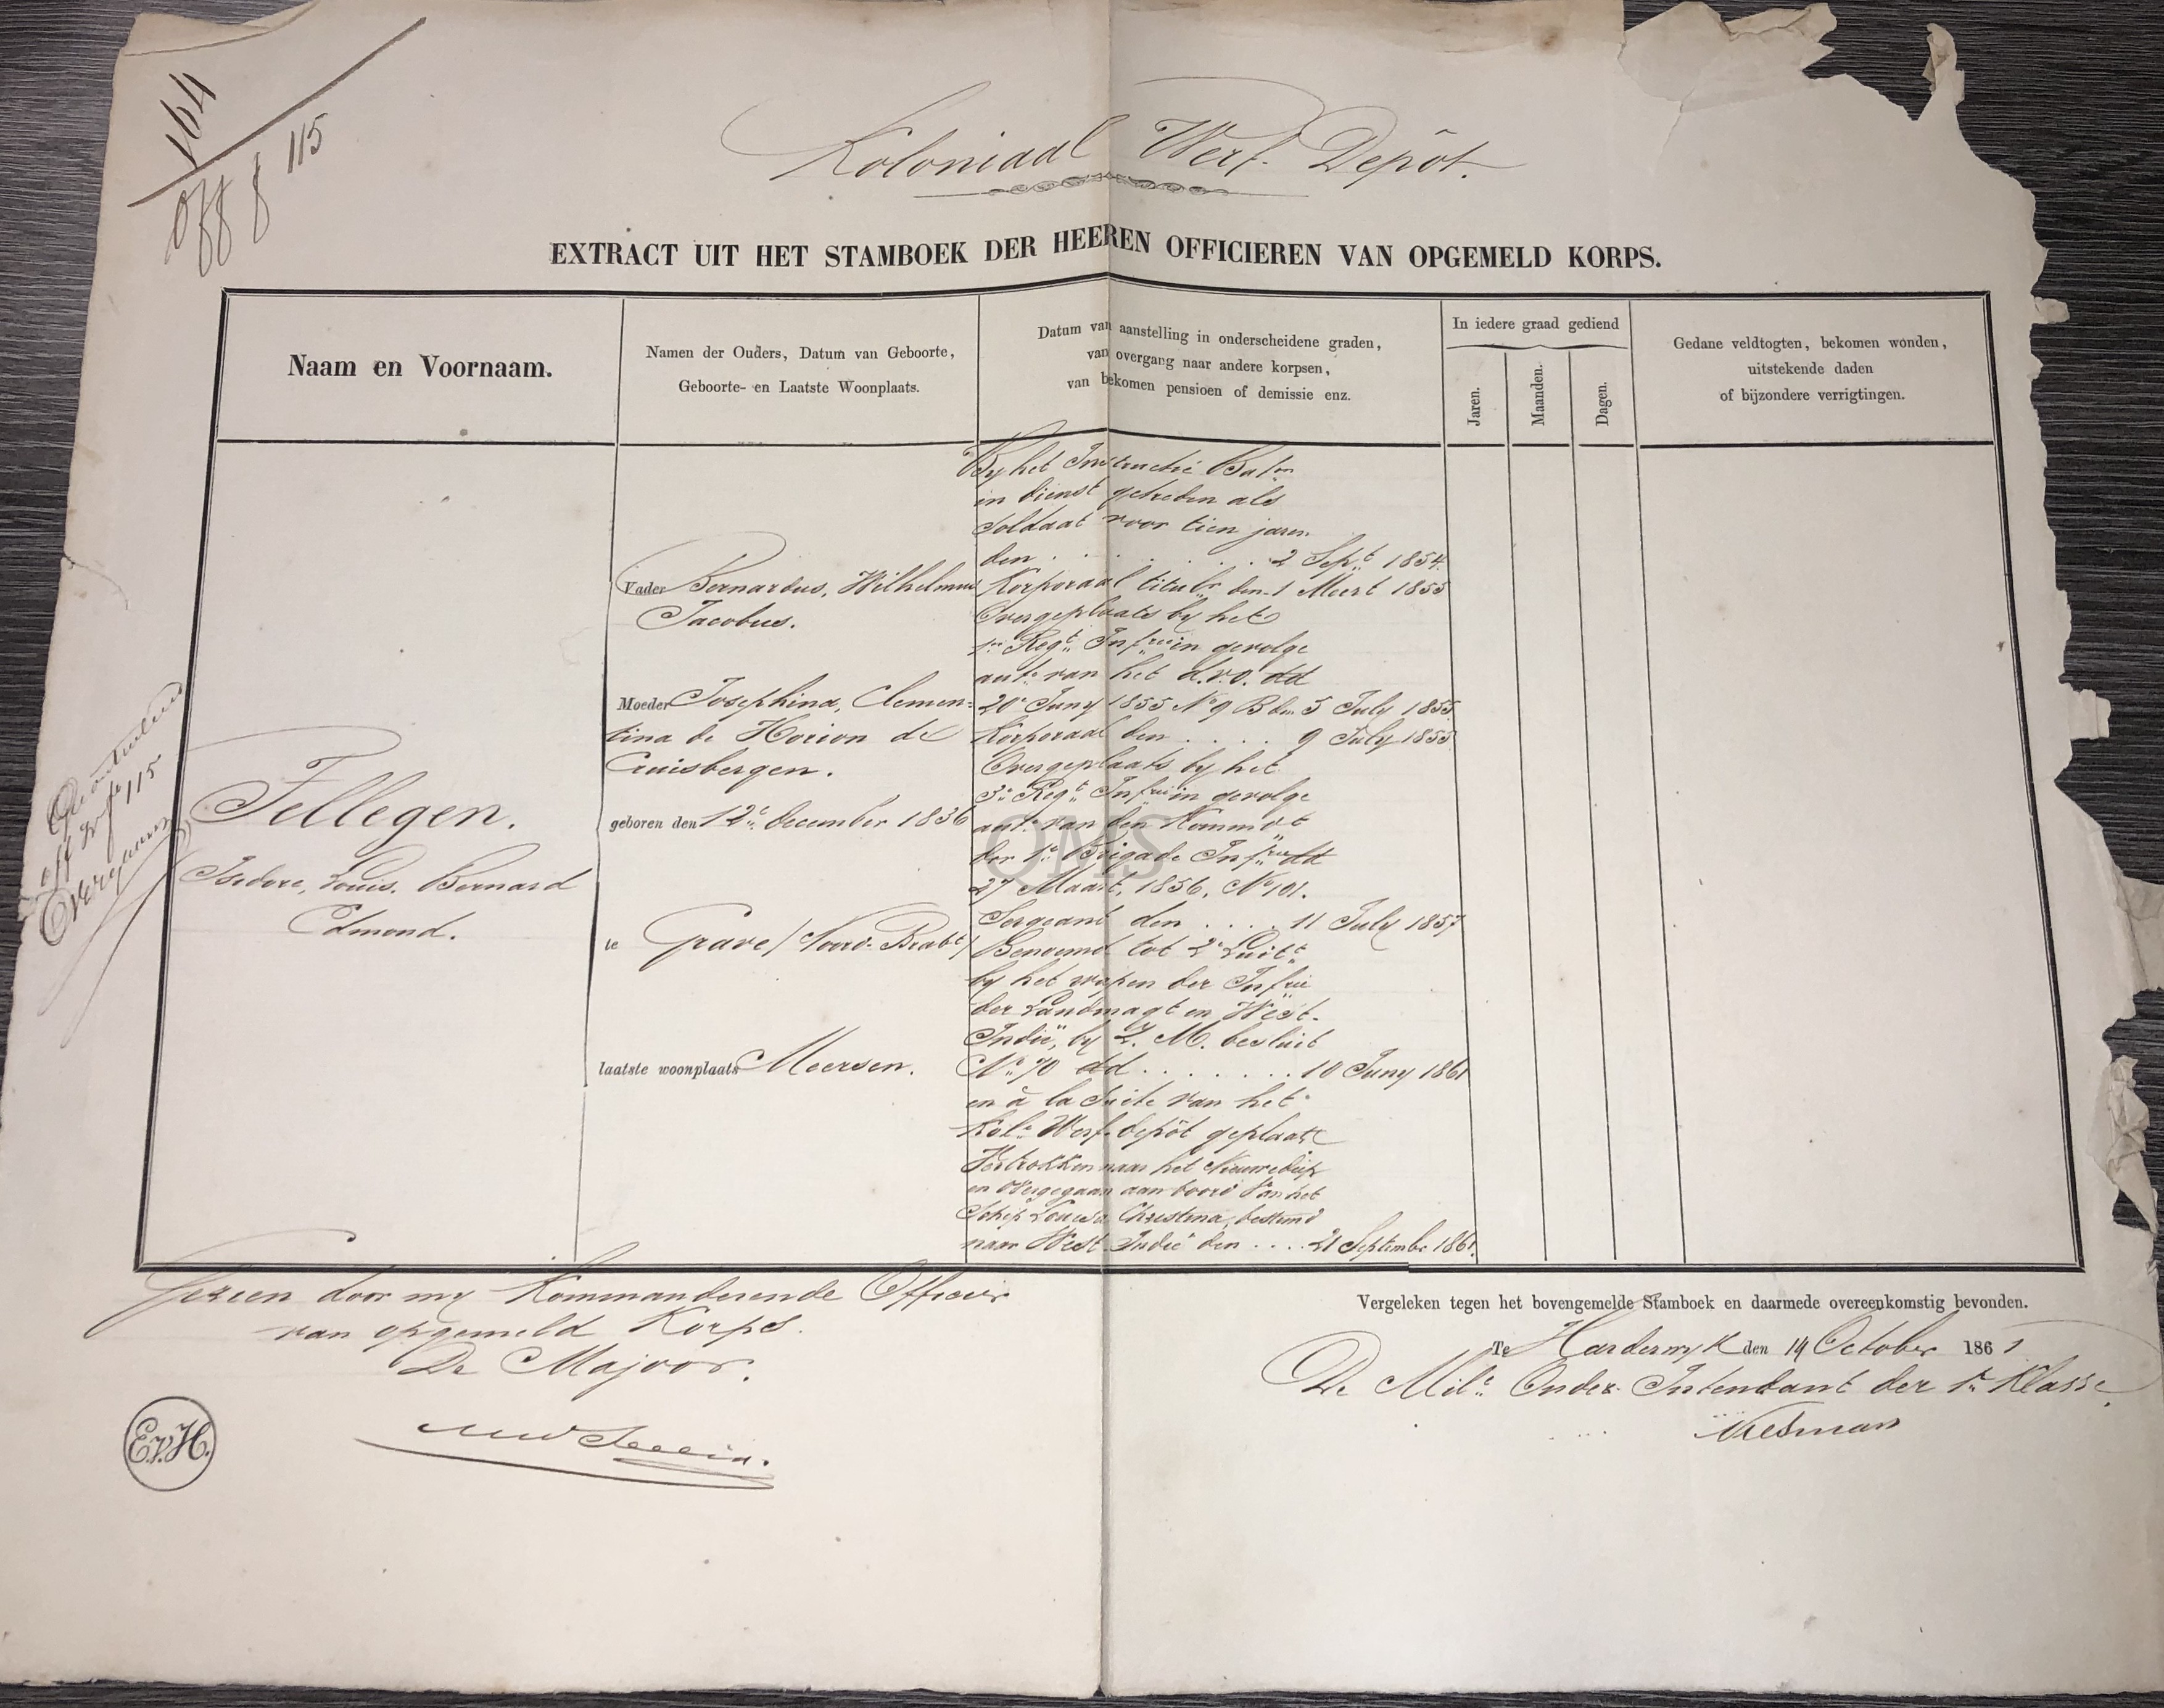 164
Off f 115
Koloniaal Werf-Depôt.
EXTRACT UIT HET STAMBOEK DER HEEREN OFFICIEREN VAN OPGEMELD KORPS.
Naam en Voornaam.
Namen der Ouders, Datum van Geboorte,
Geboorte- en Laatste Woonplaats.
Datum van aanstelling in onderscheidene graden,
van overgang naar andere korpsen,
van bekomen pensioen of demissie enz.
In iedere graad gediend
Jaren.
Maanden.
Dagen.
Gedane veldtogten, bekomen wonden,
uitstekende daden
of bijzondere verrigtingen.
off f 115
Overgenomen
Fellegen.
Isidore, Louis, Bernard
Edmond.
Vader Bernardus, Wilhelmus
Jacobus.
Moeder Josephina, Clemen-
tina de Horion de
Cruisbergen.
geboren den 12e December 1836
te Grave / Noord-Brabt /
laatste woonplaats Meersen.
By het Instructie Baton
in dienst getreden als
Soldaat voor tien jaren
den . . . . . . . 2 Sept 1854.
Korporaal titulr den 1 Meert 1855
Overgeplaats by het
1e Regt Infrie in gevolge
autn van het d.v.O. dd
20 Juny 1855 No 9 B den 5 July 1855.
Korporaal den . . . . 9 July 1855
Overgeplaats by het
3e Regt Infrie in gevolge
autn van den Kommdt
der 1e Brigade Infrie dd
27 Maart, 1856, No 101.
Sergeant den . . . . 11 July 1857
Benoemd tot 2e Luitt
by het wapen der Infrie
der Landmagt in West-
Indië, by Z. M. besluit
No 70 dd . . . . . . . 10 Juny 1861
en à la Suite van het
Kole Werf-depôt geplaatst
Vertrokken naar het Nieuwediep
en Overgegaan aan boord van het
Schip Louisa Christina, bestemd
naar West-Indië den . . . . 21 September 1861.
Gezien door my Kommanderende Officier
van opgemeld Korps.
De Majoor.
E.v.H.
QMS
Vergeleken tegen het bovengemelde Stamboek en daarmede overeenkomstig bevonden.
Te Harderwyk den 19 October 1861
De Mil.e Onder-Intendant der 1e Klasse,